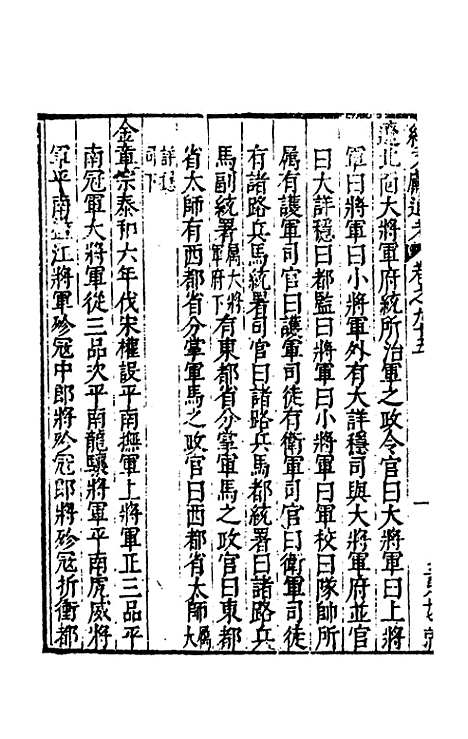 續文獻通考 卷之九十五
遼北面大將軍府統所治軍之政令官曰大將軍曰上將
軍曰將軍曰小將軍外有大詳穩司與大將軍府並官
曰大詳穩曰都監曰將軍曰小將軍曰軍校曰隊帥所
属有護軍司官曰護軍司徒有衛軍司官曰衛軍司徒
有諸路兵馬統署司官曰諸路兵馬都統署曰諸路兵
馬副統署属大將軍府下有東都省分掌軍馬之政官曰東都
省太師有西都省分掌軍馬之政官曰西都省太師属大
詳穩司下
金章宗泰和六年伐宋權設平南撫軍上將軍正三品平
南冠軍大將軍從三品次平南龍驤將軍平南虎威將
軍平南盪江將軍殄冠中郎將殄冠郎將殄冠折衝都